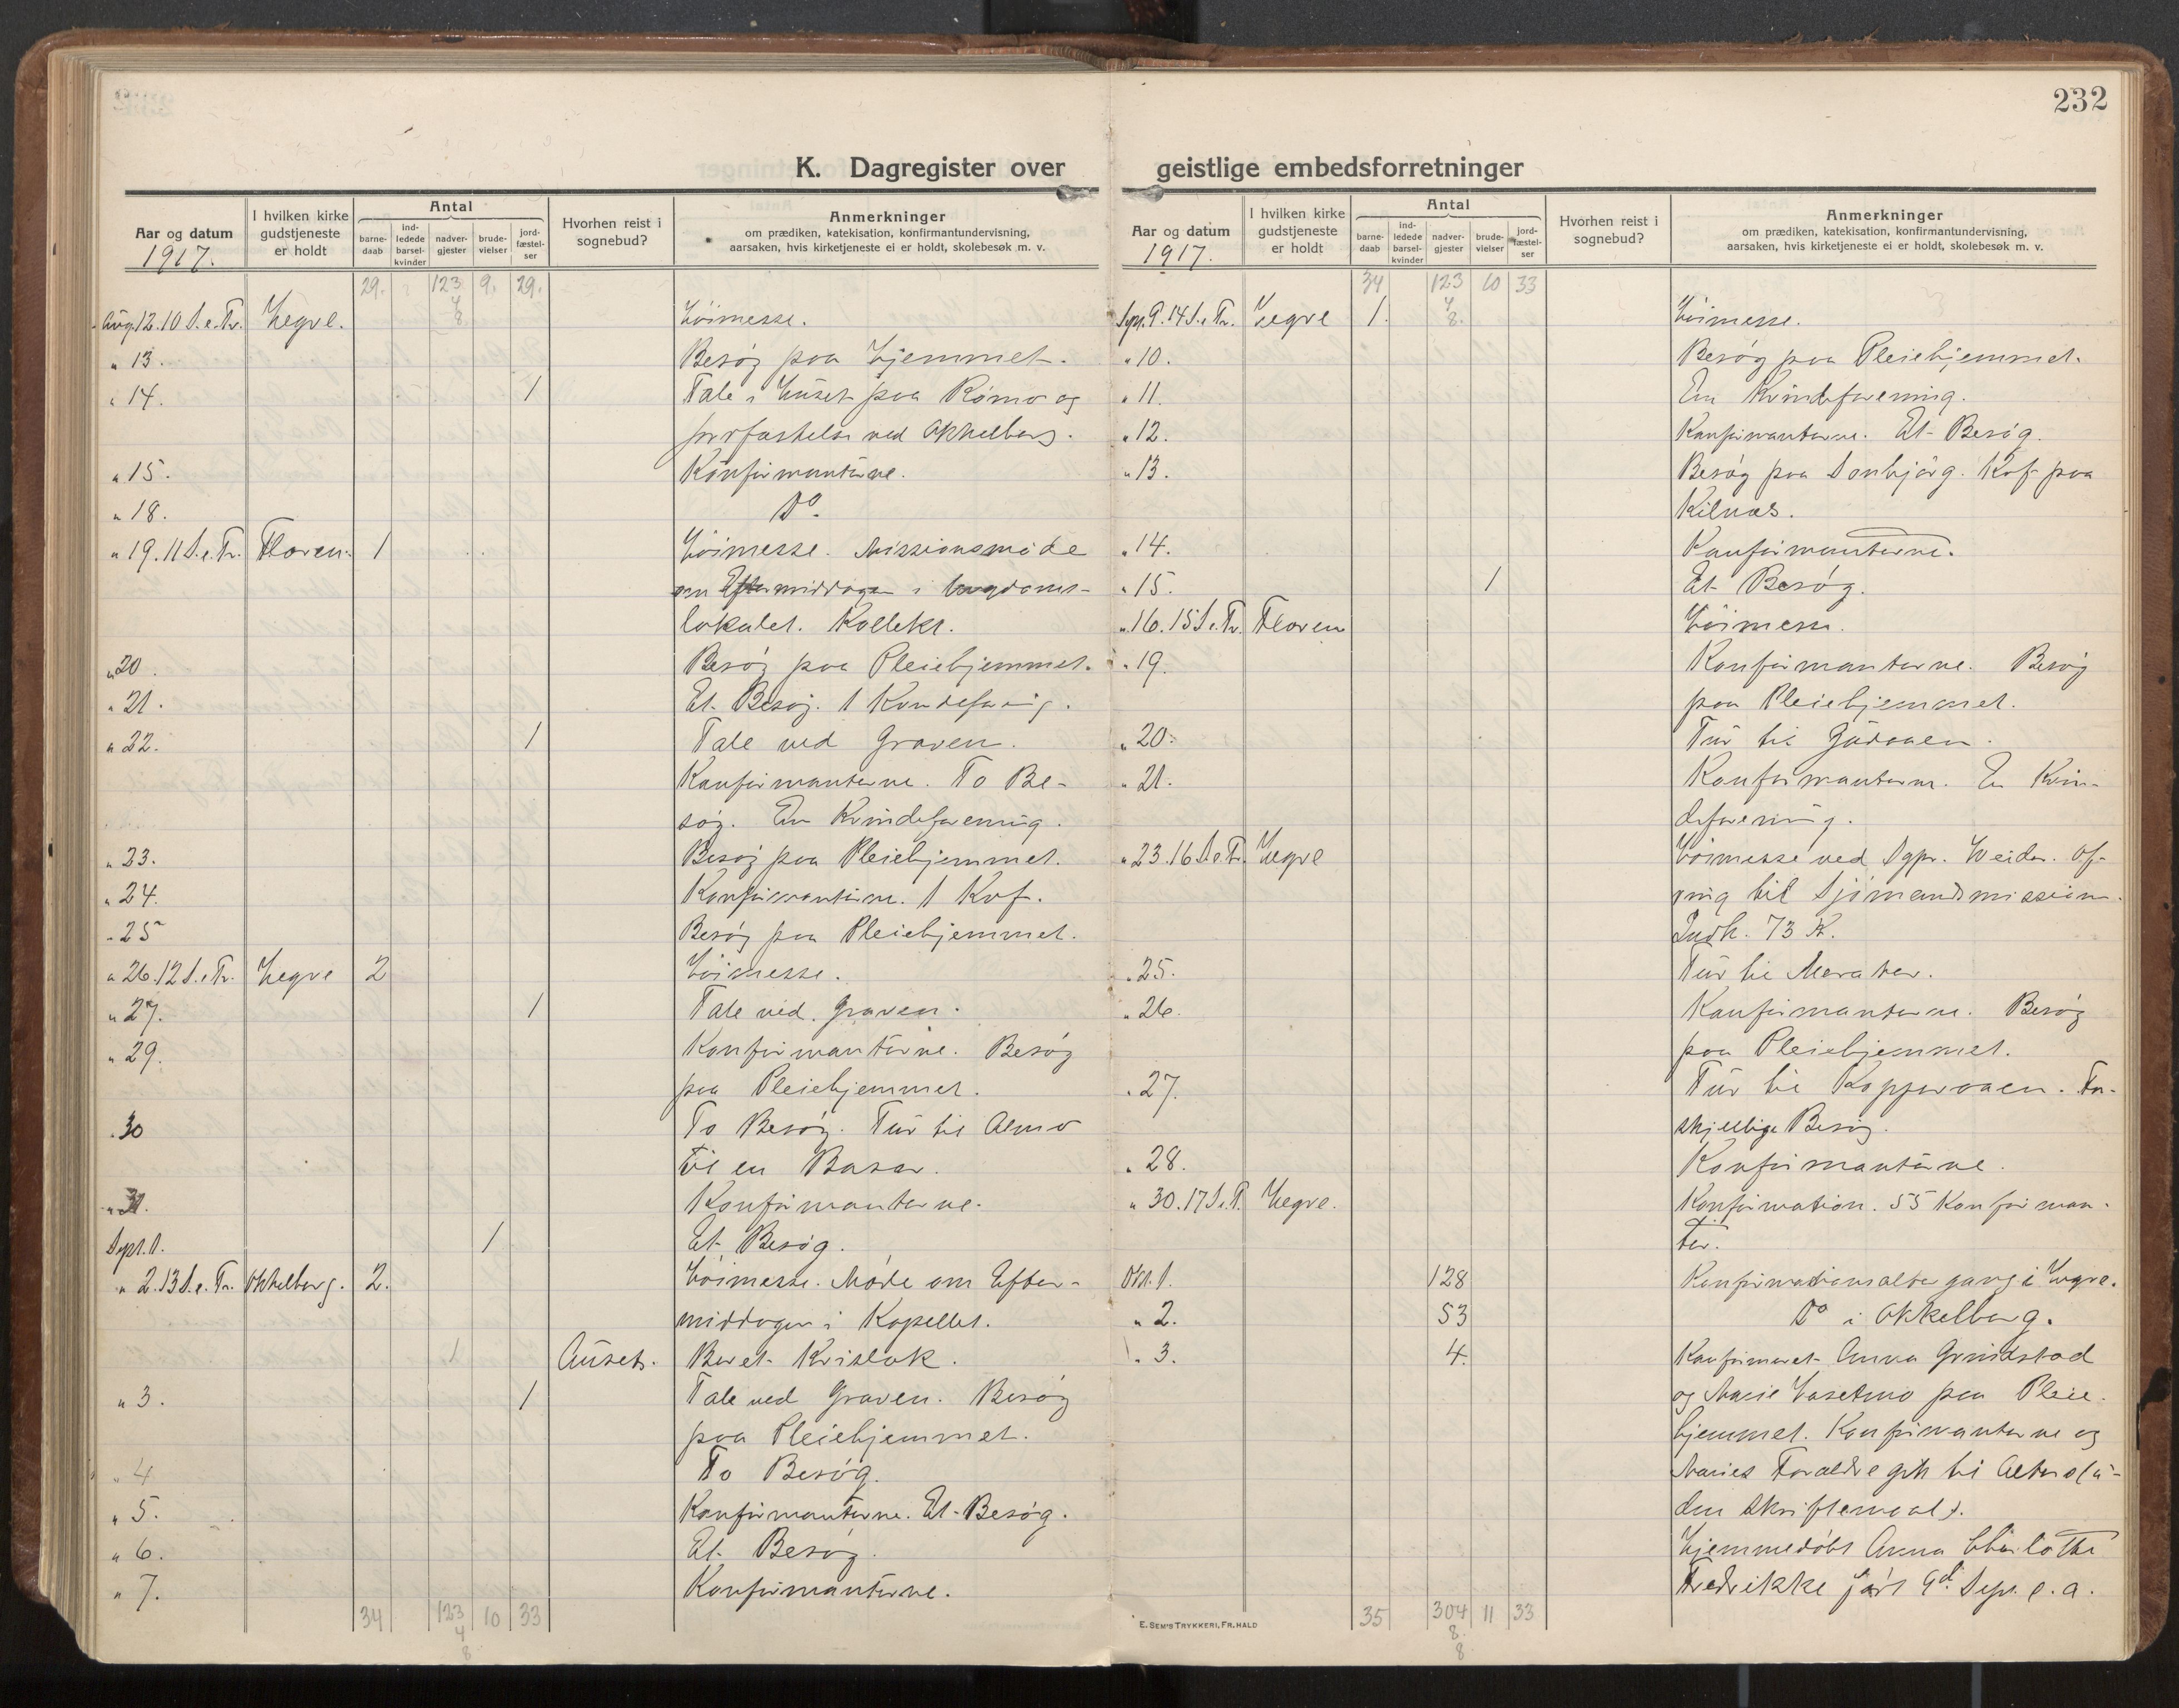 232
K. Dagregister over geistlige embedsforretninger
Aar og datum
1917.
I hvilken kirke gudstjeneste er holdt
Antal
barne-daab
ind-ledede barsel-kvinder
nadver-gjester
brude-vielser
jord-fæstel-ser
Hvorhen reist i sognebud?
Anmerkninger
om prædiken, katekisation, konfirmantundervisning,
aarsaken, hvis kirketjeneste ei er holdt, skolebesøk m. v.
29. 123 9. 29.
4
8.
Aug. 12. 10 S. e. Tr. Hegre. Höimesse.
" 13. Besøg paa Hjemmet.
" 14. 1 Tale i Huset paa Rømo og
ved Okkelberg.
" 15. Konfirmanterne.
" 18. Do.
" 19. 11 S. e. Tr. Floren. 1 Höimesse. Missionsmøde
om Eftermiddagen i Ungdoms-
lokalet. Kollekt.
" 20. Besøg paa Pleiehjemmet.
" 21. Et Besøg. 1
" 22. 1 Tale ved Graven.
Konfirmanterne. To Be-
søg. En Kvindeforening.
" 23. Besøg paa Pleiehjemmet.
" 24. Konfirmanterne. 1 Kvf.
" 25 Besøg paa Pleiehjemmet.
" 26. 12 S. e. Tr. Hegre 2 Höimesse.
" 27. 1 Tale ved Graven.
" 29. Konfirmanterne. Besøg
paa Pleiehjemmet.
" 30 To Besøg. Tur til Almo
til en Basar.
" 31. Konfirmanterne.
Sept. 1. 1 Et Besøg.
" 2. 13 S. e. Tr. Okkelberg. 2. Höimesse. Møde om Efter-
middagen i Kapellet.
1 Auset. Beret Krislok.
" 3. 1 Tale ved Graven. Besøg
paa Pleiehjemmet.
" 4 To Besøg.
" 5. Konfirmanterne. Et Besøg.
" 6. Et Besøg.
" 7. Konfirmanterne.
34 123 10 33
4
8
Aar og datum
1917.
I hvilken kirke gudstjeneste er holdt
Antal
barne-daab
ind-ledede barsel-kvinder
nadver-gjester
brude-vielser
jord-fæstel-ser
Hvorhen reist i sognebud?
Anmerkninger
om prædiken, katekisation, konfirmantundervisning,
aarsaken, hvis kirketjeneste ei er holdt, skolebesøk m. v.
34 123 10 33
4
8.
Sept. 9. 14 S. e. Tr. Hegre 1. Höimesse.
" 10. Besøg paa Pleiehjemmet.
" 11. En Kvindeforening.
" 12. Konfirmanterne. Et Besøg.
" 13. Besøg paa Sonbjørg. Kvf paa
Kilnæs.
" 14. Konfirmanterne.
" 15. 1 Et Besøg.
" 16. 15 S. e. Tr. Floren Höimesse.
" 19. Konfirmanterne. Besøg
paa Pleiehjemmet.
" 20. Tur til Gudaaen.
" 21. Konfirmanterne. En Kvin-
deforening.
" 23. 16 S. e. Tr. Hegre Höimesse ved Sgpr. Weider. Of-
ring til Sjømandsmission.
Indk. 73 K.
" 25. Tur til Meraker.
" 26. Konfirmanterne. Besøg
paa Pleiehjemmet.
" 27. Tur til Kopperaaen. For-
skjellige Besøg.
" 28. Konfirmanterne.
" 30. 17 S. e. T. Hegre. Konfirmation. 55 Konfirman-
ter.
Okt. 1. 128 Konfirmationsaltergang i Hegre.
" 2. 53 Do i Okkelberg.
" 3. 4. Konfirmeret Anna Grindstad
og Marie Vasetmo paa Pleie-
hjemmet. Konfirmanterne og
Maries Forældre gik til Alters (u-
den Skriftemaal).
Hjemmedøbt Anna Charlotte
Fredrikke født 9d. Sept. s. a.
35 304 11 33
8.
8
E. Sem's Trykkeri, Fr.hald